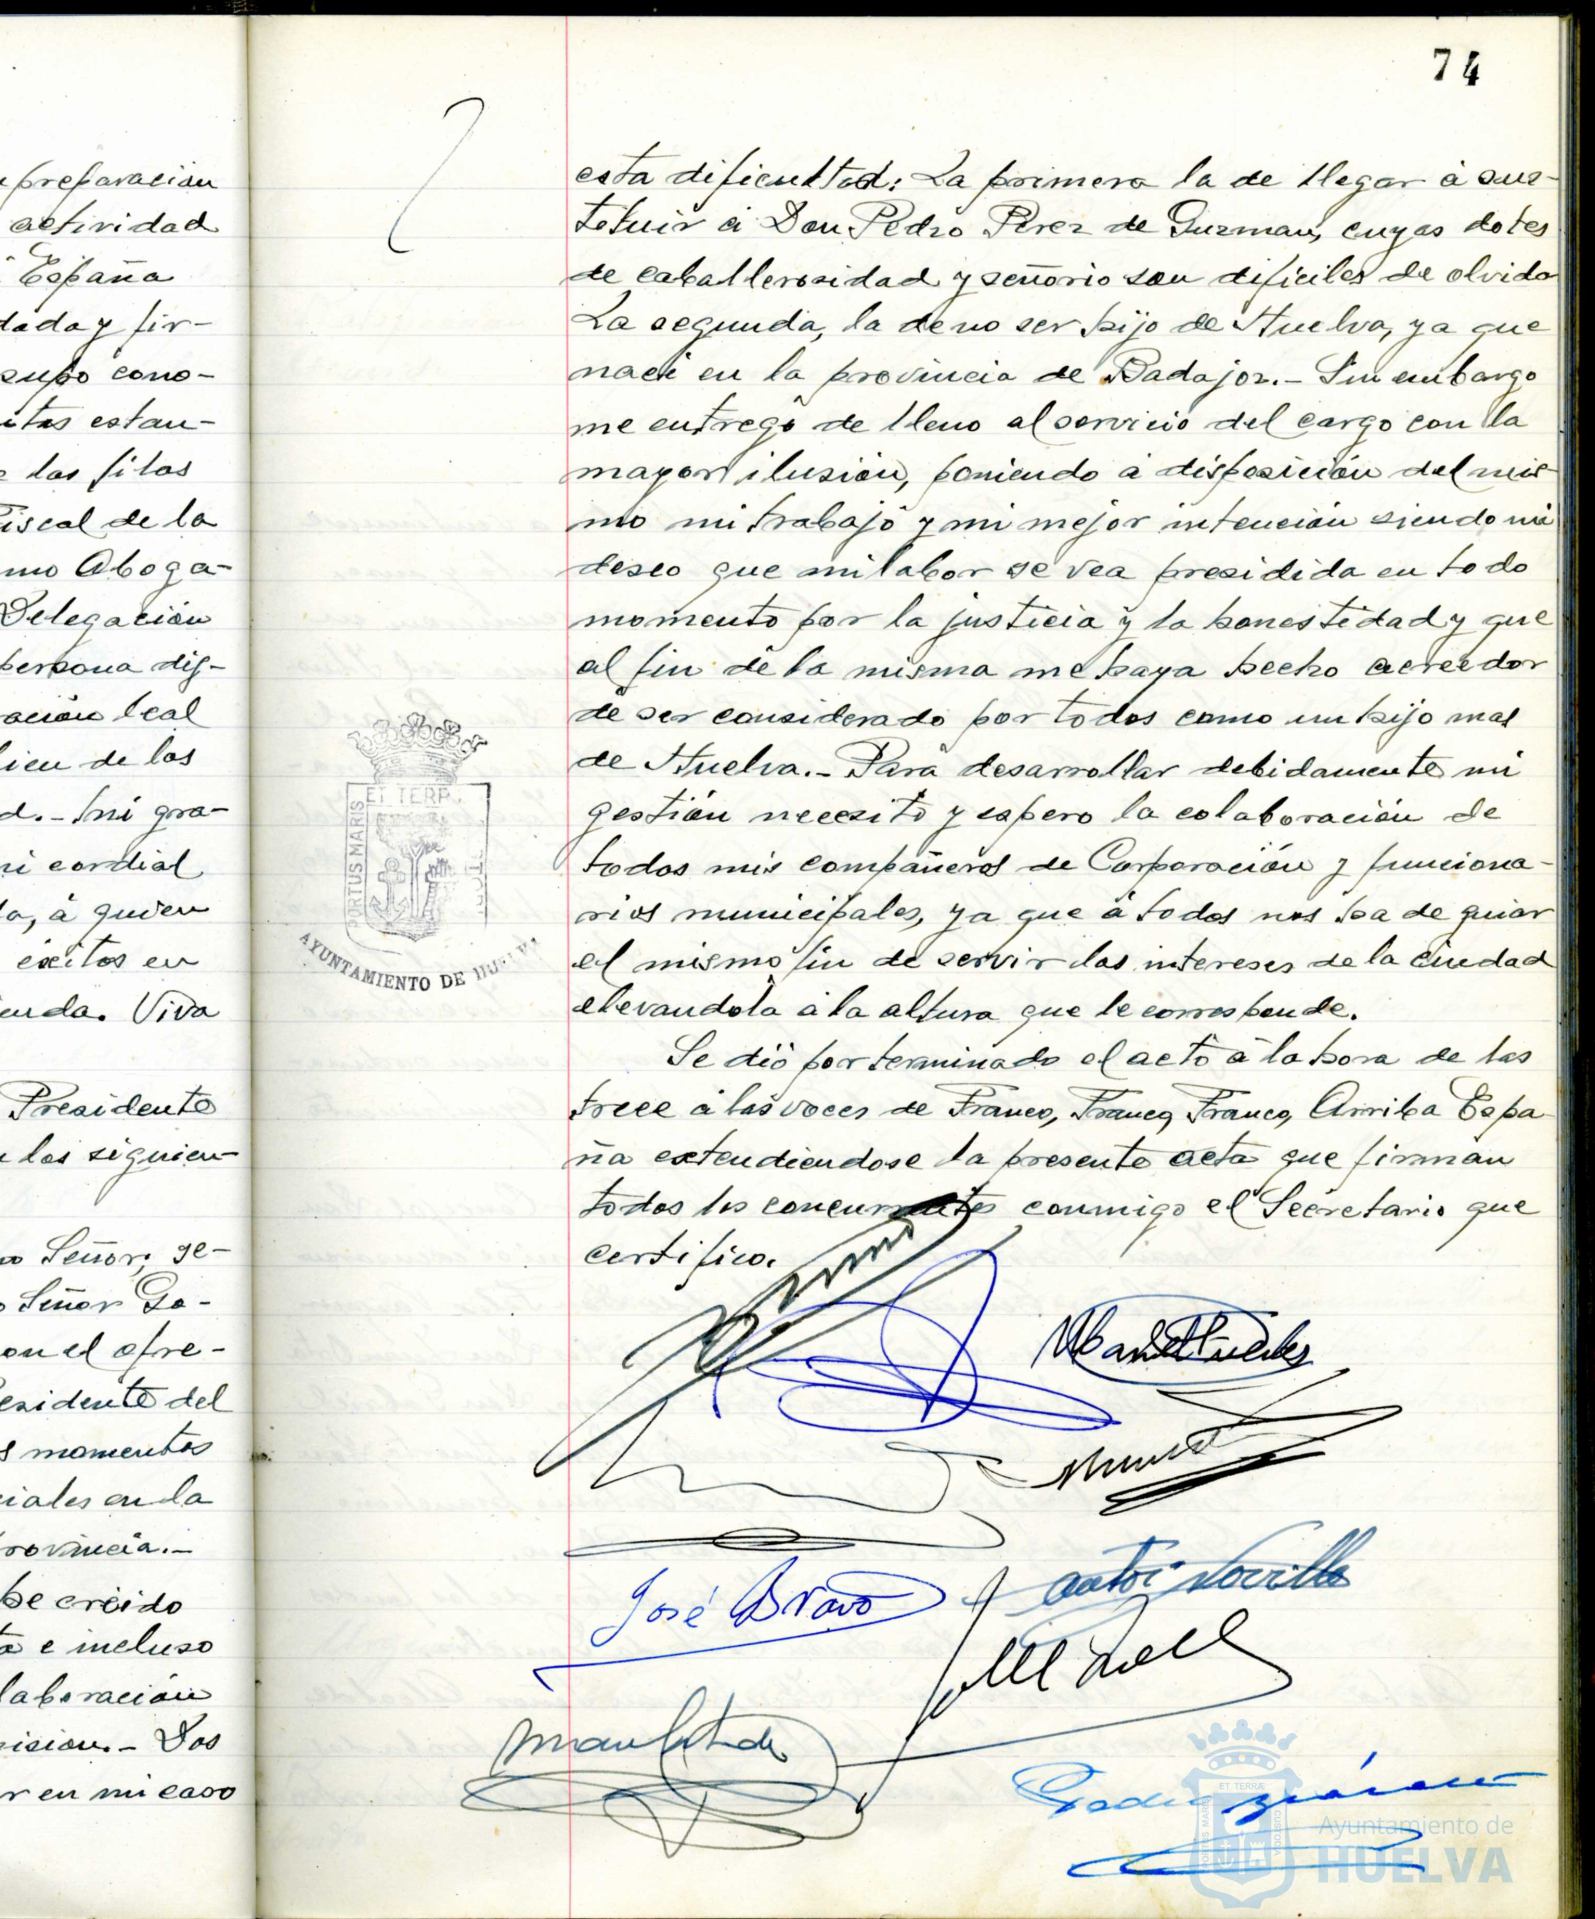 preparación
actividad
España
dada y fir-
supo cono-
estau-
las filas
iscal de la
mo Aboga-
Delegación
persona dig-
ación leal
bien de los
d. - mi gra-
mi cordial
a, á quien
éxitos en
enda. Viva
Presidente
los siguien-
Señor, ge-
Señor Go-
on el ofre-
esidente del
s momentos
ciales en la
rovincia.-
he creido
e incluso
laboración
misión. - Dos
r en mi caso
74
esta dificultad: La primera la de llegar á sus-
tetuir á Don Pedro Pérez de Guzman, cuyas dotes
de caballerosidad y señorio son dificiles de olvida
La segunda, la de no ser hijo de Huelva, ya que
naci en la provincia de Badajoz. - Sin embargo
me entrego de lleno al servicio del cargo con la
mayor ilusión, poniendo á disposición del mis-
mo mi trabajo y mi mejor intención siendo mi
deseo que mi labor se vea presidida en todo
momento por la justicia y la honestidad y que
al fin de la misma me haya hecho acreedor
de ser considerado por todos como un hijo mas
de Huelva. - Para desarrollar debidamente mi
gestión necesito y espero la colaboración de
todos mis compañeros de Corporación y funciona-
rios municipales, ya que á todos nos ha de guiar
el mismo fin de servir los intereses de la ciudad
elevandola á la altura que le corresponde.
Se dió por terminado el acto á la hora de las
trece á las voces de Franco, Franco, Franco, Arriba Espa
ña extendiendose la presente acta que firman
todos los concurrentes conmigo el Secretario que
certifico.
ET TERR
PORTUS MARIS
AYUNTAMIENTO DE HUELVA
José Bravo
Pedro
ET TERRA
PORTUS MARIS
CUSTODIA
Ayuntamiento de
HUELVA